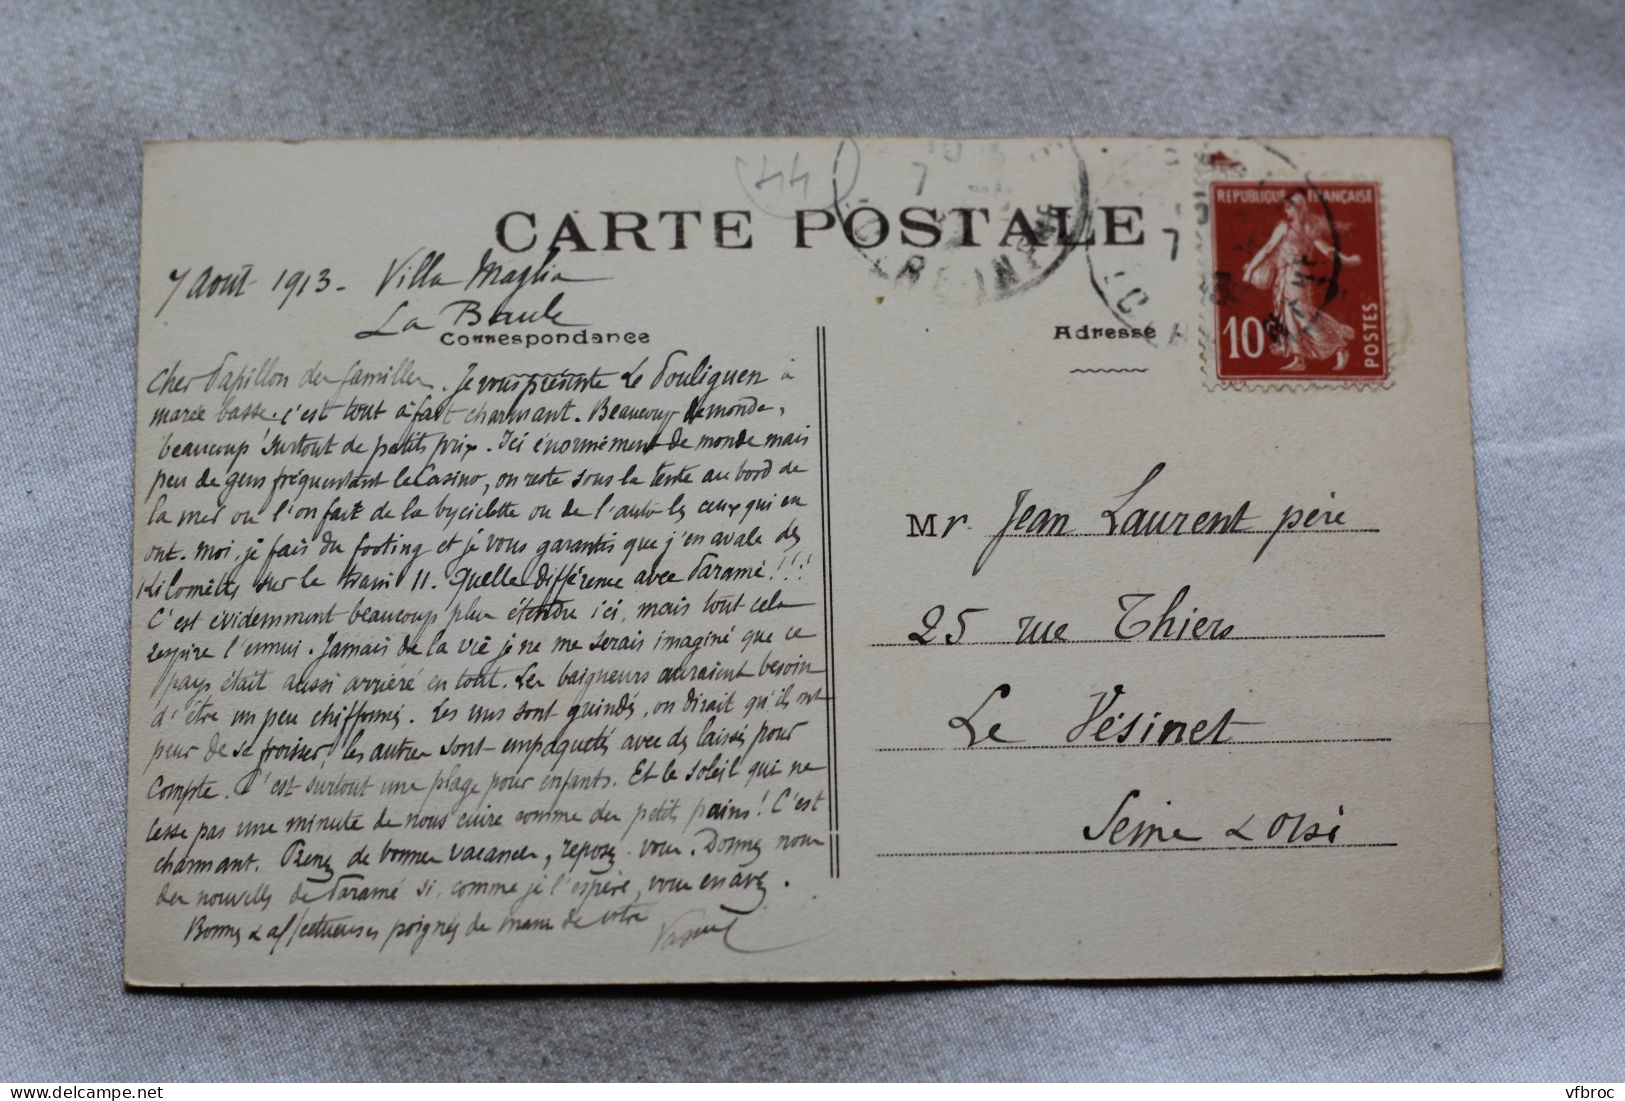 (44)
CARTE POSTALE
REPUBLIQUE FRANÇAISE
10
POSTES
7 Août 1913 - Villa Maglia
La Baule
Correspondance
Adresse
Cher Papillon des familles. Je vous présente Le Pouliguen à
marée basse. C'est tout à fait charmant. Beaucoup de monde,
beaucoup surtout de petits prix. Ici énormément de monde mais
peu de gens fréquentant le Casino, on reste sous la tente au bord de
la mer ou l'on fait de la byciclette ou de l'auto les ceux qui en
ont. Moi, je fais du footing et je vous garantis que j'en avale des
Kilomètres sur le train 11. Quelle différence avec Paramé!!!
C'est évidemment beaucoup plus étendu ici, mais tout cela
respire l'ennui. Jamais de la vie je ne me serais imaginé que ce
pays était aussi arriéré en tout. Les baigneurs auraient besoin
d'être un peu chiffonnés. Les uns sont guindés, on dirait qu'ils ont
peur de se froisser, les autres sont empaquetés avec des laissés pour
compte. C'est surtout une plage pour enfants. Et le soleil qui ne
cesse pas une minute de nous cuire comme des petits pains! C'est
charmant. Prenez de bonnes vacances, reposez-vous. Donnez nous
des nouvelles de Paramé si, comme je l'espère, vous en avez.
Bonnes & affectueuses poignées de main de votre
Mr. Jean Laurent père
25 rue Thiers
Le Vésinet
Seine & Oise
vfbroc